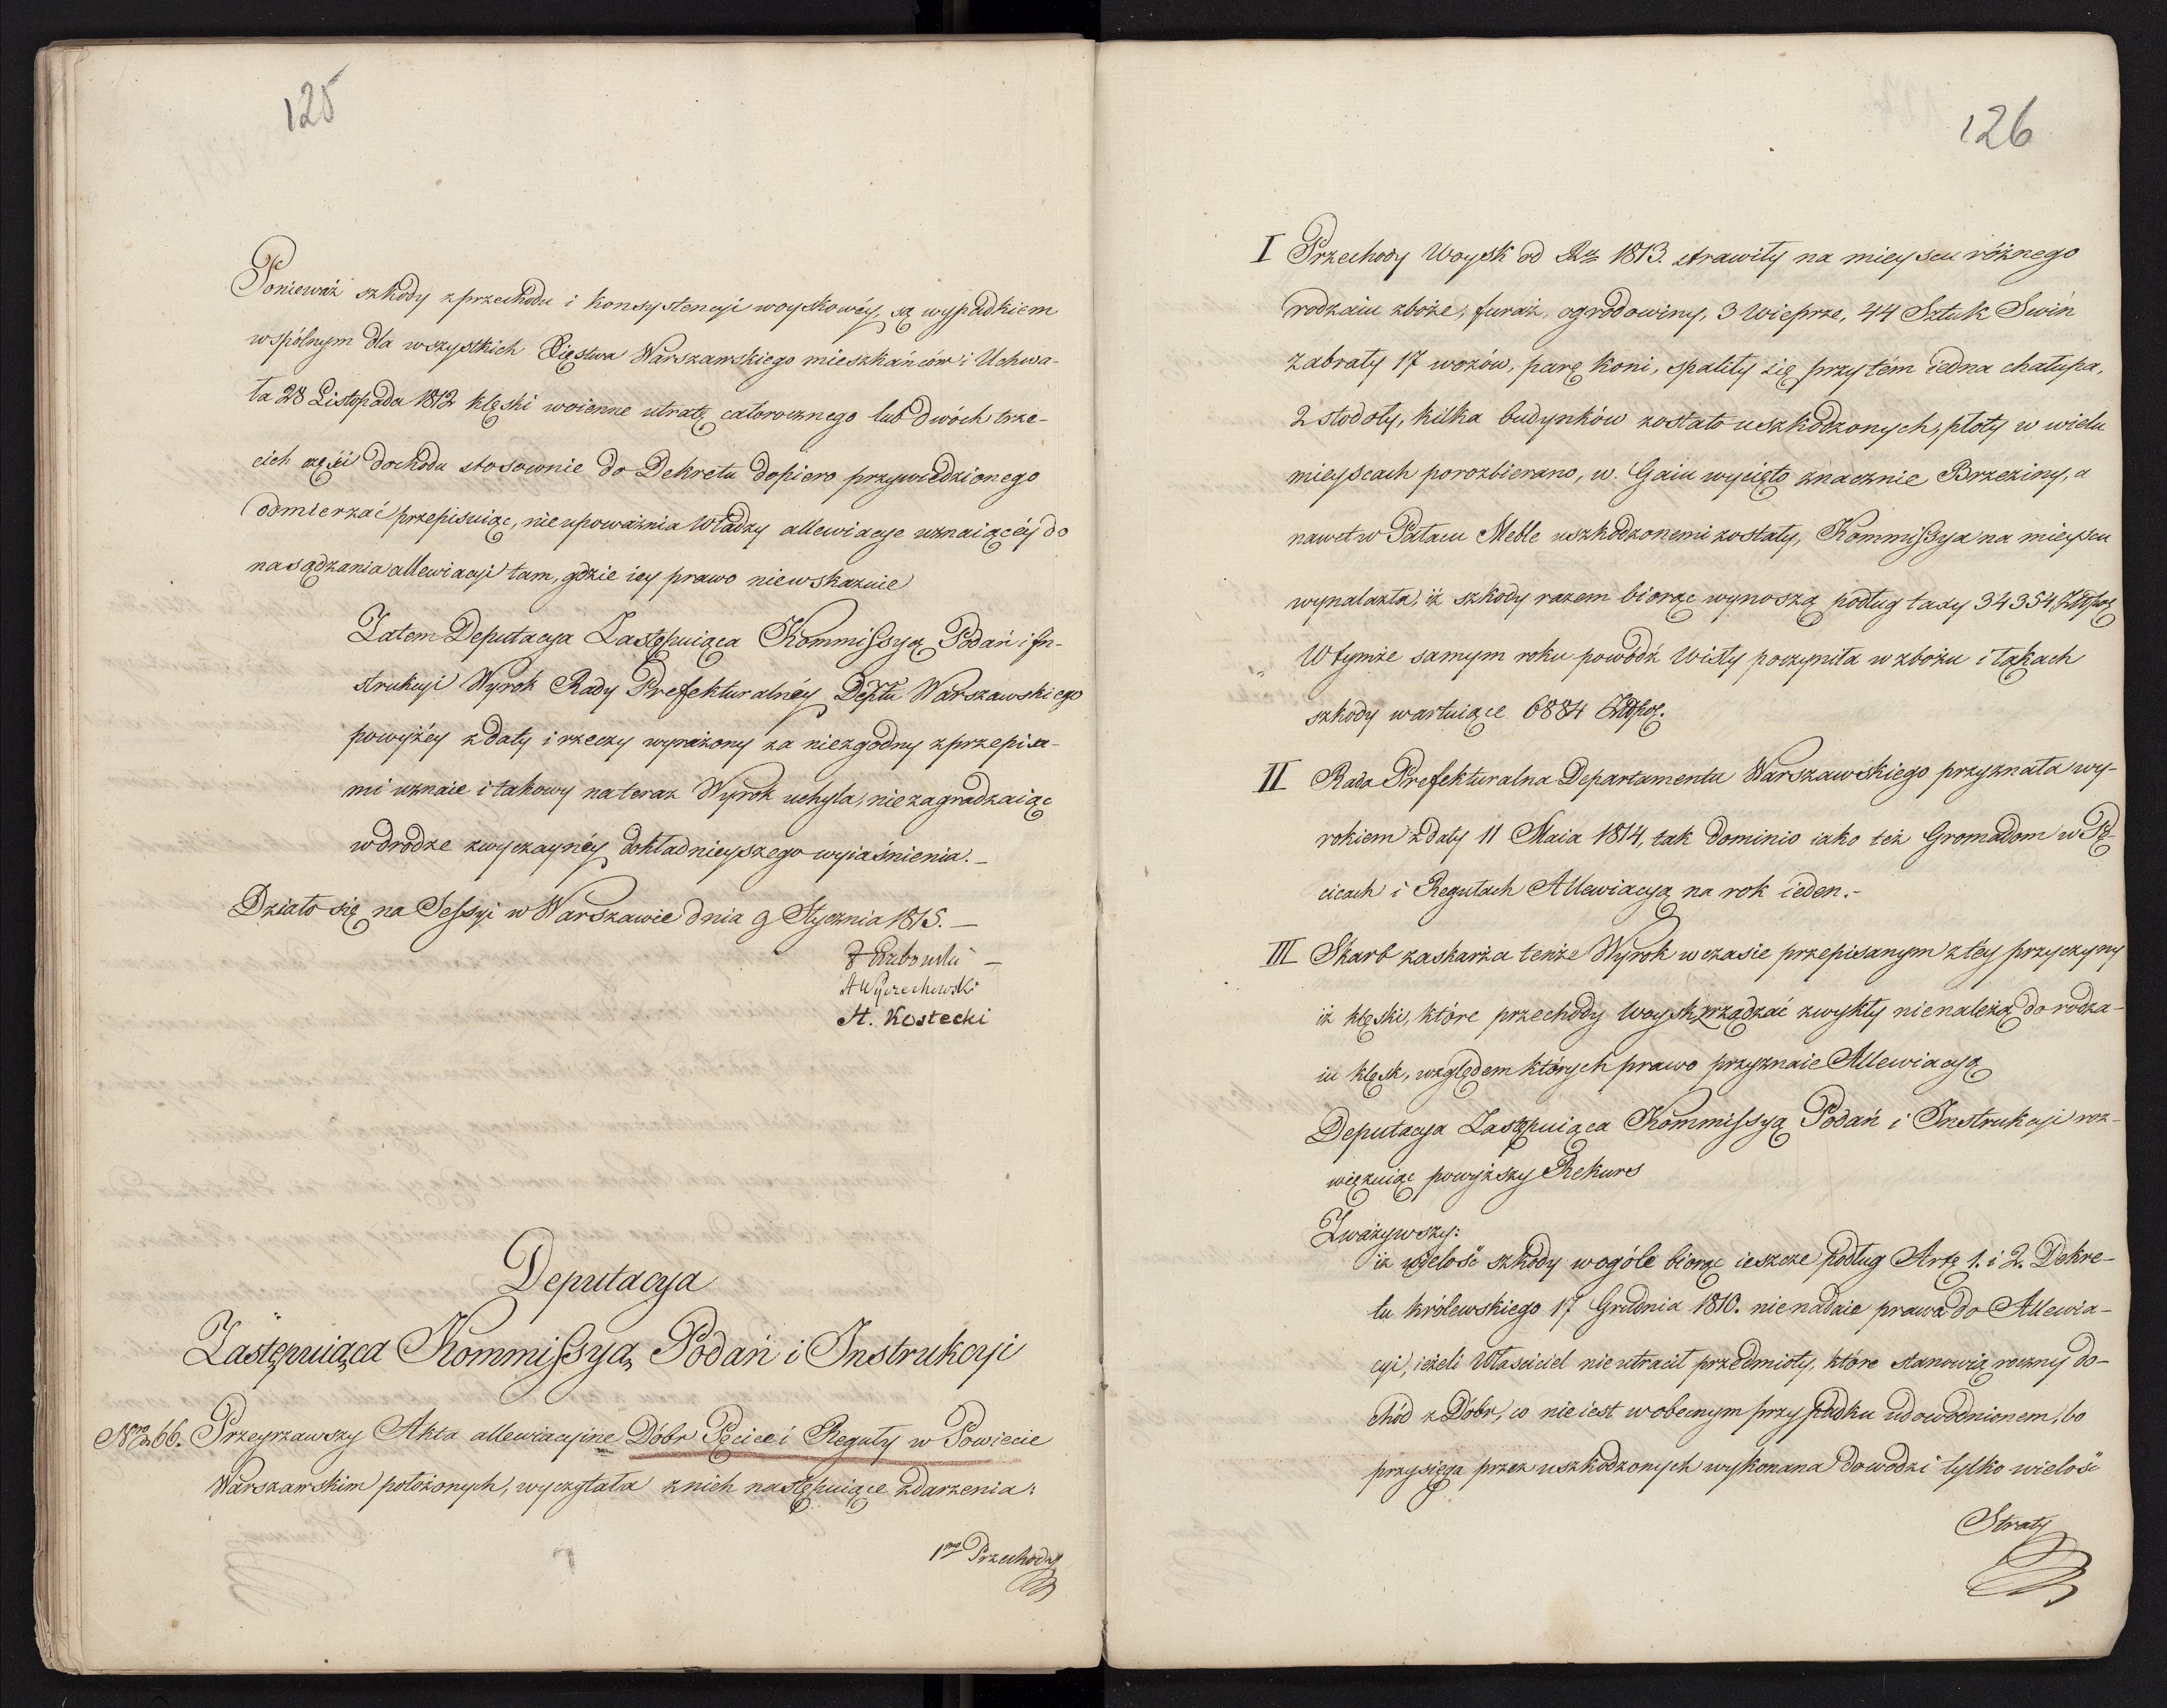 125
Ponieważ szkody z przechodu i konsystencyi woyskowéy, są wypadkiem
wspólnym dla wszystkich Xięstwa Warszawskiego mieszkańców i Uchwa-
ła 28 Listopada 1812 klęski woienne utratę całorocznego lub dwóch trze-
cich części dochodu stosownie do Dekretu dopiero przywiedzionego
odmierzać przepisuiąc, nieupoważnia Władzy allewiacye uznaiącéy do
nasądzania allewiacyi tam, gdzie iey prawo niewskazuie
Zatem Deputacya Zastępuiąca Kommissyą Podań i In-
strukcyi Wyrok Rady Prefekturalnéy Deptu Warszawskiego
powyżéy z daty i rzeczy wyrażony za niezgodny z przepisa-
mi uznaie i takowy na teraz Wyrok uchyla, niezagradzaiąc
w drodze zwyczaynéy dokładnieyszego wyiaśnienia. -
Działo się na Sessyi w Warszawie dnia 9 Stycznia 1815. -
A Wyczechowski
A. Kostecki
Deputacya
Zastępuiąca Kommissyą Podań i Instrukcyi
Nro 66. Przeyrzawszy Akta allewiacyine Dóbr Pęcice i Reguły w Powiecie
Warszawskim położonych, wyczytała z nich następuiące zdarzenia:
1mo Przechody
126
I Przechody Woysk od Ru 1813. strawiły na mieyscu różnego
rodzaiu zboże, furaż, ogrodowiny, 3 Wieprze, 44 Sztuk Swiń
zabrały 17 wozów, parę koni, spaliły się przytém iedna chałupa,
2 stodoły, kilka budynków zostało uszkodzonych, płoty w wielu
mieyscach porozbierano, w Gaiu wycięto znacznie Brzeziny, a
nawet w Pałacu Meble uszkodzonemi zostały, Kommissya na mieyscu
wynalazła, iż szkody razem biorąc wynoszą podług taxy 34354 Złtpol
W tymże samym roku powódź Wisły poczyniła w zbożu i łąkach
szkody wartuiące 6884 Złtpol.
II Rada Prefekturalna Departamentu Warszawskiego przyznała wy-
rokiem z daty 11 Maia 1814, tak dominio iako też Gromadom w Pę-
cicach i Regułach Allewiacyą na rok ieden. -
III Skarb zaskarża tenże Wyrok w czasie przepisanym z téy przyczyny
iż klęski, które przechody Woysk zrządzać zwykły nienależą do rodza-
iu klęsk, względem których prawo przyznaie Allewiacyą
Deputacya Zastępuiąca Kommissyą Podań i Instrukcyi roz-
więzuiąc powyższy Rekurs
Zważywszy:
iż wielość szkody wogóle biorąc ieszcze podług Arts 1. i 2. Dekre-
tu królewskiego 17 Grudnia 1810. nienadaie prawa do Allewia-
cyi, ieżeli Właściciel nie utracił przedmioty, które stanowią roczny do-
chód z Dóbr, co nie iest w obecnym przypadku udowodnionem, bo
przysięga przez uszkodzonych wykonana dowodzi tylko wielość
Straty